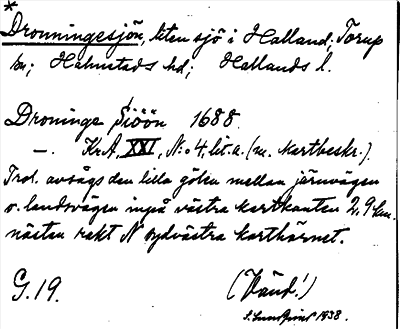 *
Dronningesjön, liten sjö i Halland; Torup
sn; Halmstads hd; Hallands l.
Droninge Siöön 1688.
—. KrA, XXVI, N:o 4, lit. a. (m. kartbeskr.).
Trol. avsågs den lilla gölen mellan järnvägen
o. landsvägen inpå västra kartkanten 2,9 km.
nästan rakt N sydvästra karthörnet.
G. 19.
(Vänd!)
S. Lundqvist 1938.